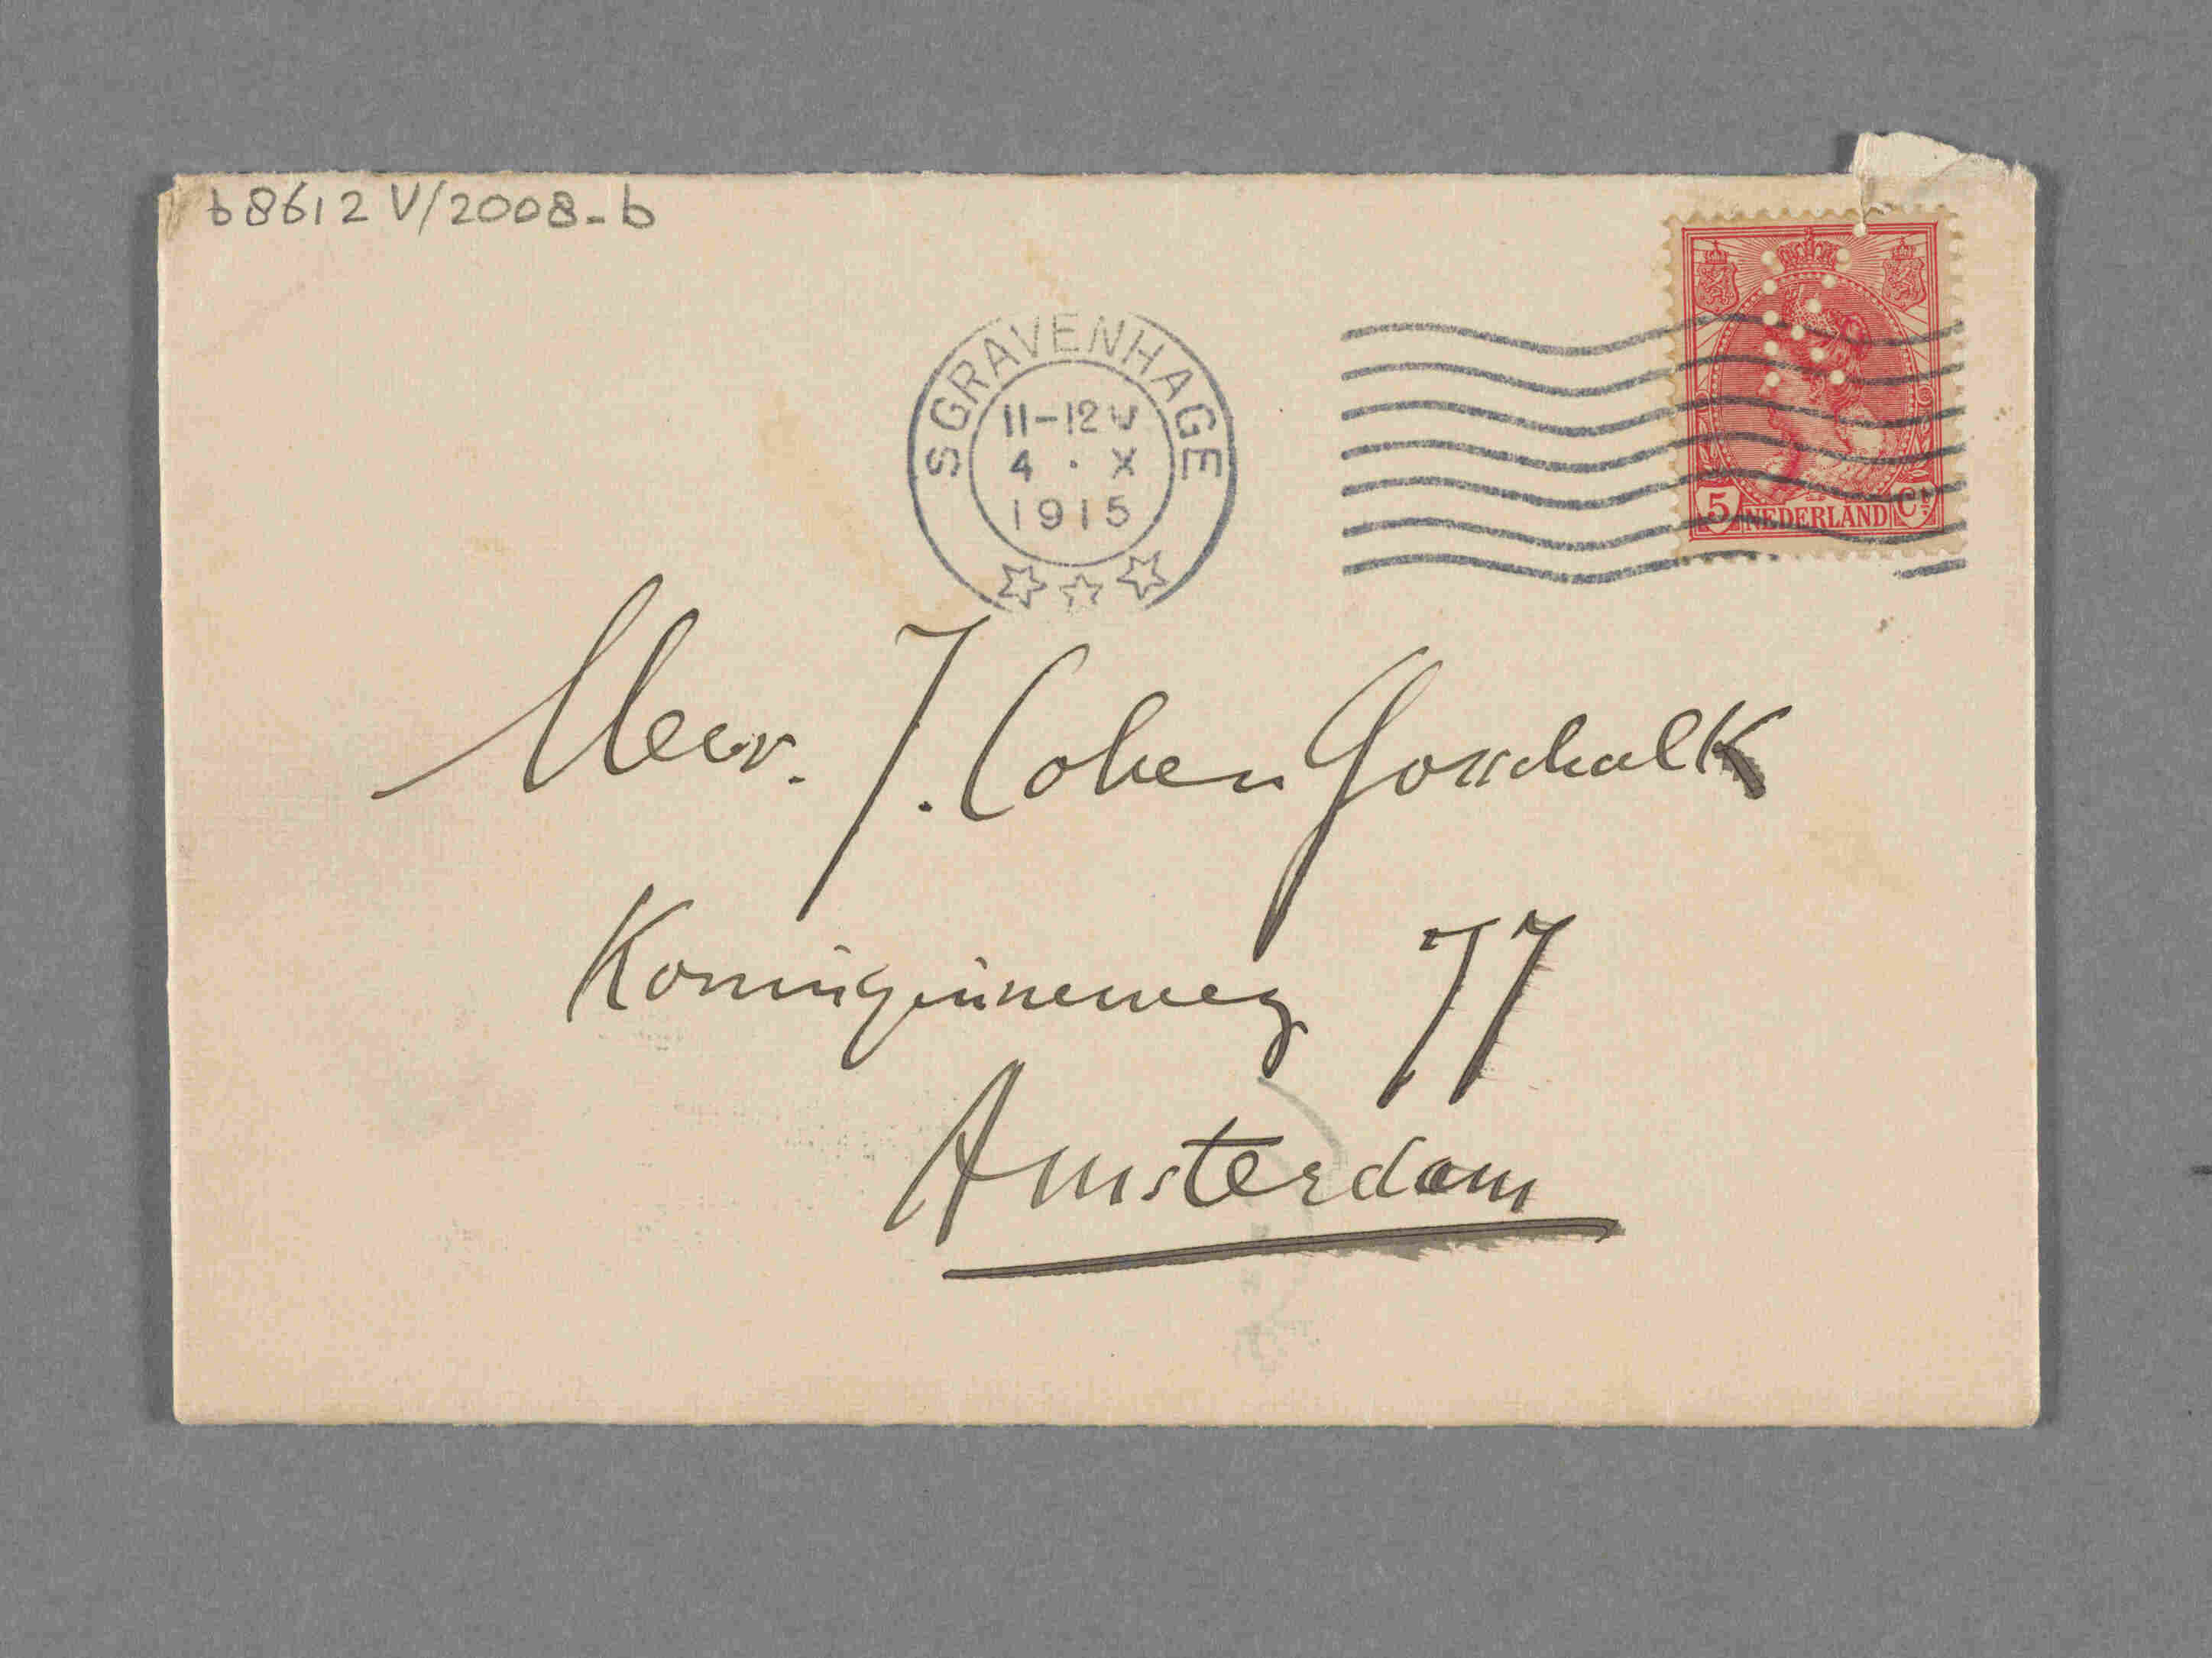 b8612 V/2008-b
SGRAVENHAGE
11-12 V
4 · X
1915
5 NEDERLAND Ct
Mevr. J. Cohen Gosschalk
Koninginneweg 77
Amsterdam